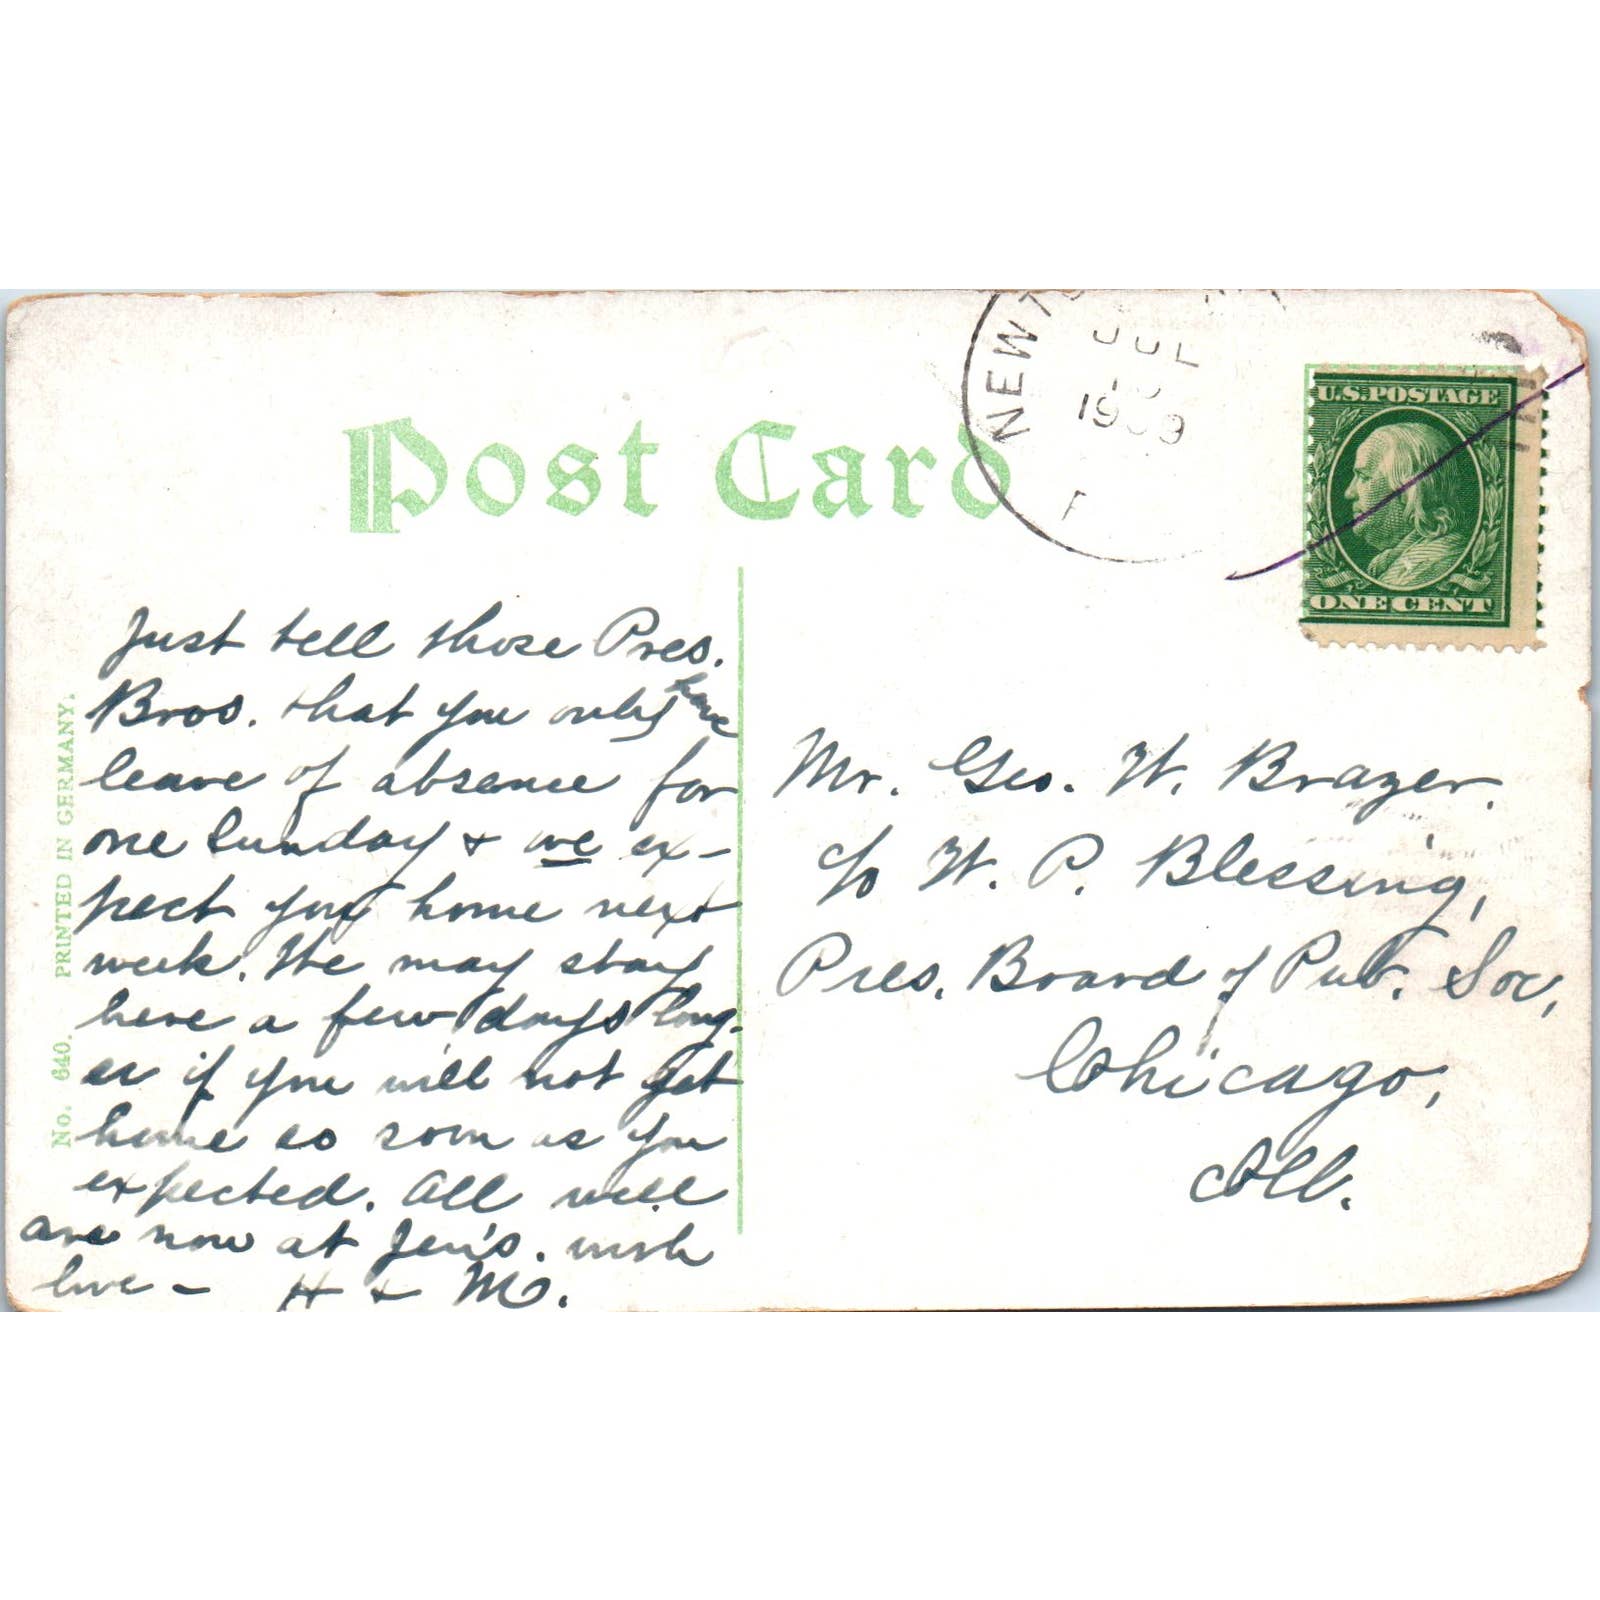 Post Card
NEWTO
JUL
1909
U.S. POSTAGE
ONE CENT
No. 640. PRINTED IN GERMANY.
Just tell those Pres.
Bros. that you only have
leave of absence for
one Sunday + we ex-
pect you home next
week. We may stay
here a few days long-
er if you will not get
home so soon as you
expected. All well
are now at Jen's. with
love - H + M.
Mr. Geo. W. Brazer.
c/o W. P. Blessing,
Pres. Board of Pub. Soc,
Chicago,
Ill.